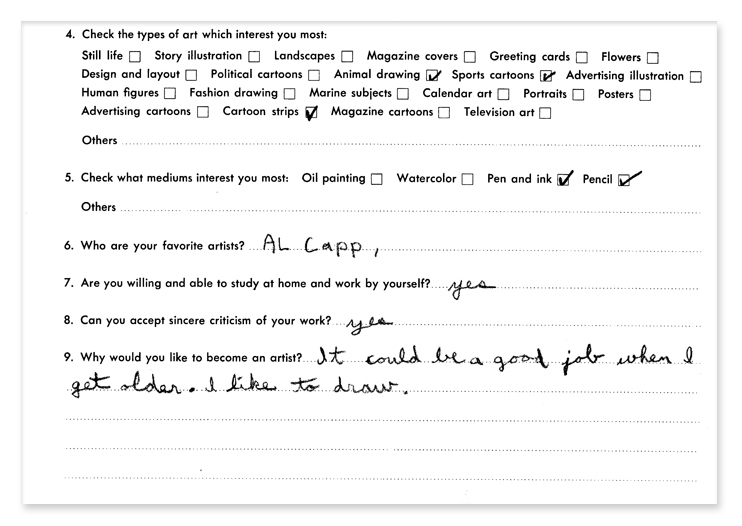 4. Check the types of art which interest you most:
Still life ☐ Story illustration ☐ Landscapes ☐ Magazine covers ☐ Greeting cards ☐ Flowers ☐
Design and layout ☐ Political cartoons ☐ Animal drawing ☑ Sports cartoons ☑ Advertising illustration ☐
Human figures ☐ Fashion drawing ☐ Marine subjects ☐ Calendar art ☐ Portraits ☐ Posters ☐
Advertising cartoons ☐ Cartoon strips ☑ Magazine cartoons ☐ Television art ☐
Others
5. Check what mediums interest you most: Oil painting ☐ Watercolor ☐ Pen and ink ☑ Pencil ☑
Others
6. Who are your favorite artists? AL Capp,
7. Are you willing and able to study at home and work by yourself? yes
8. Can you accept sincere criticism of your work? yes
9. Why would you like to become an artist? It could be a good job when I
get older. I like to draw.